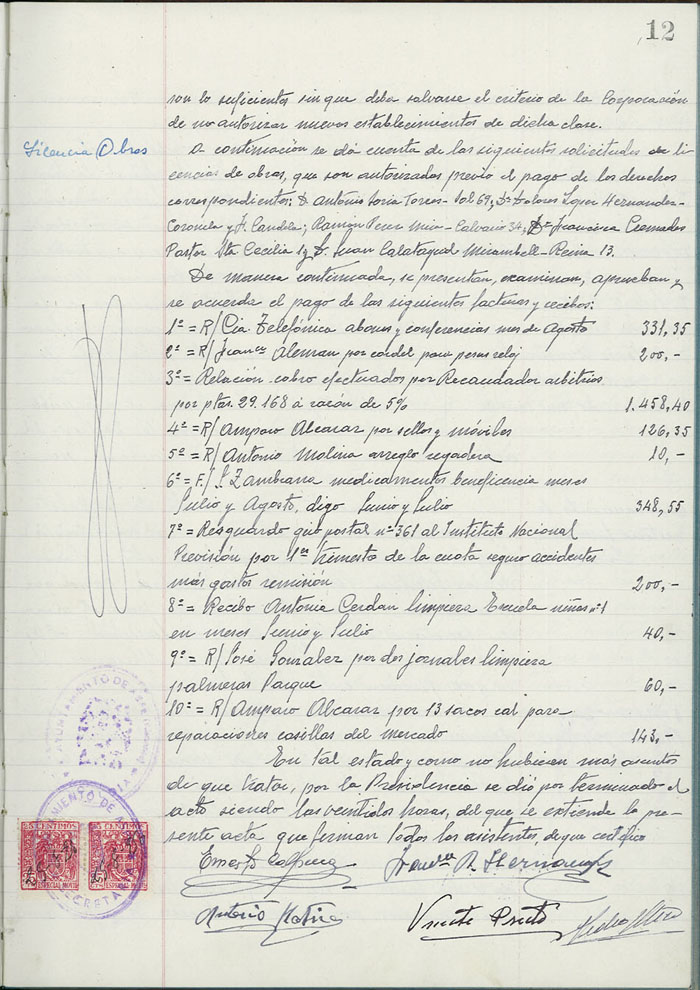 12
son lo suficientes sin que deba salvarse el criterio de la Corporación
de no autorizar nuevos establecimientos de dicha clase.
Licencia Obras
A continuación se dá cuenta de las siguientes solicitudes de li
cencias de obras, que son autorizadas previo el pago de los derechos
correspondientes: D. Antonio Soria Torres - Sol 69, Dª Dolores Lopez Hernandez-
Coronela y F. Candela; Ramon Perez - Calvario 34, Dª Francisca
Pastor Sta Cecilia 1 y D. Juan Calatayud Mirambell - Reina 13.
De manera continuada, se presentan, examinan, aprueban y
se acuerda el pago de las siguientes facturas y recibos:
1º = R/ Cia Telefónica abono y conferencias mes de Agosto 331,35
2º = R/ Franco Aleman por cordel para pesas reloj 200,-
3º = Relación cobro efectuados por Recaudador arbitrios
por ptas. 29.168 á razón de 5% 1.458,40
4º = R/ Amparo Alcaraz por sellos y móviles 126,35
5º = R/ Antonio Molina arreglo regadera 10,-
6º = F./ Zambrana medicamentos beneficencia meses
Julio y Agosto, digo Junio y Julio 348,55
7º = Resguardo giro postal nº 361 al Instituto Nacional
Previsión por 1er trimestre de la cuota seguro accidentes
más gastos remisión 200,-
8º = Recibo Antonia Cerdan limpieza Escuela niñas nº 1
en meses Junio y Julio 40,-
9º = R/ José Gonzalez por dos jornales limpieza
palmeras Parque 60,-
10º = R/ Amparo Alcaraz por 13 sacos cal para
reparaciones casillas del mercado 143,-
En tal estado y como no hubieran más asuntos
de que tratar, por la Presidencia se dió por terminado el
acto siendo las veintidos horas, del que se extiende la pre-
sente acta que firman todos los asistentes, de que certifico
AYUNTAMIENTO DE
SECRETARIA
25 CENTIMOS
ESPECIAL MOVIL
Hernandez
Antonio
Vicente Prieto
Pedro